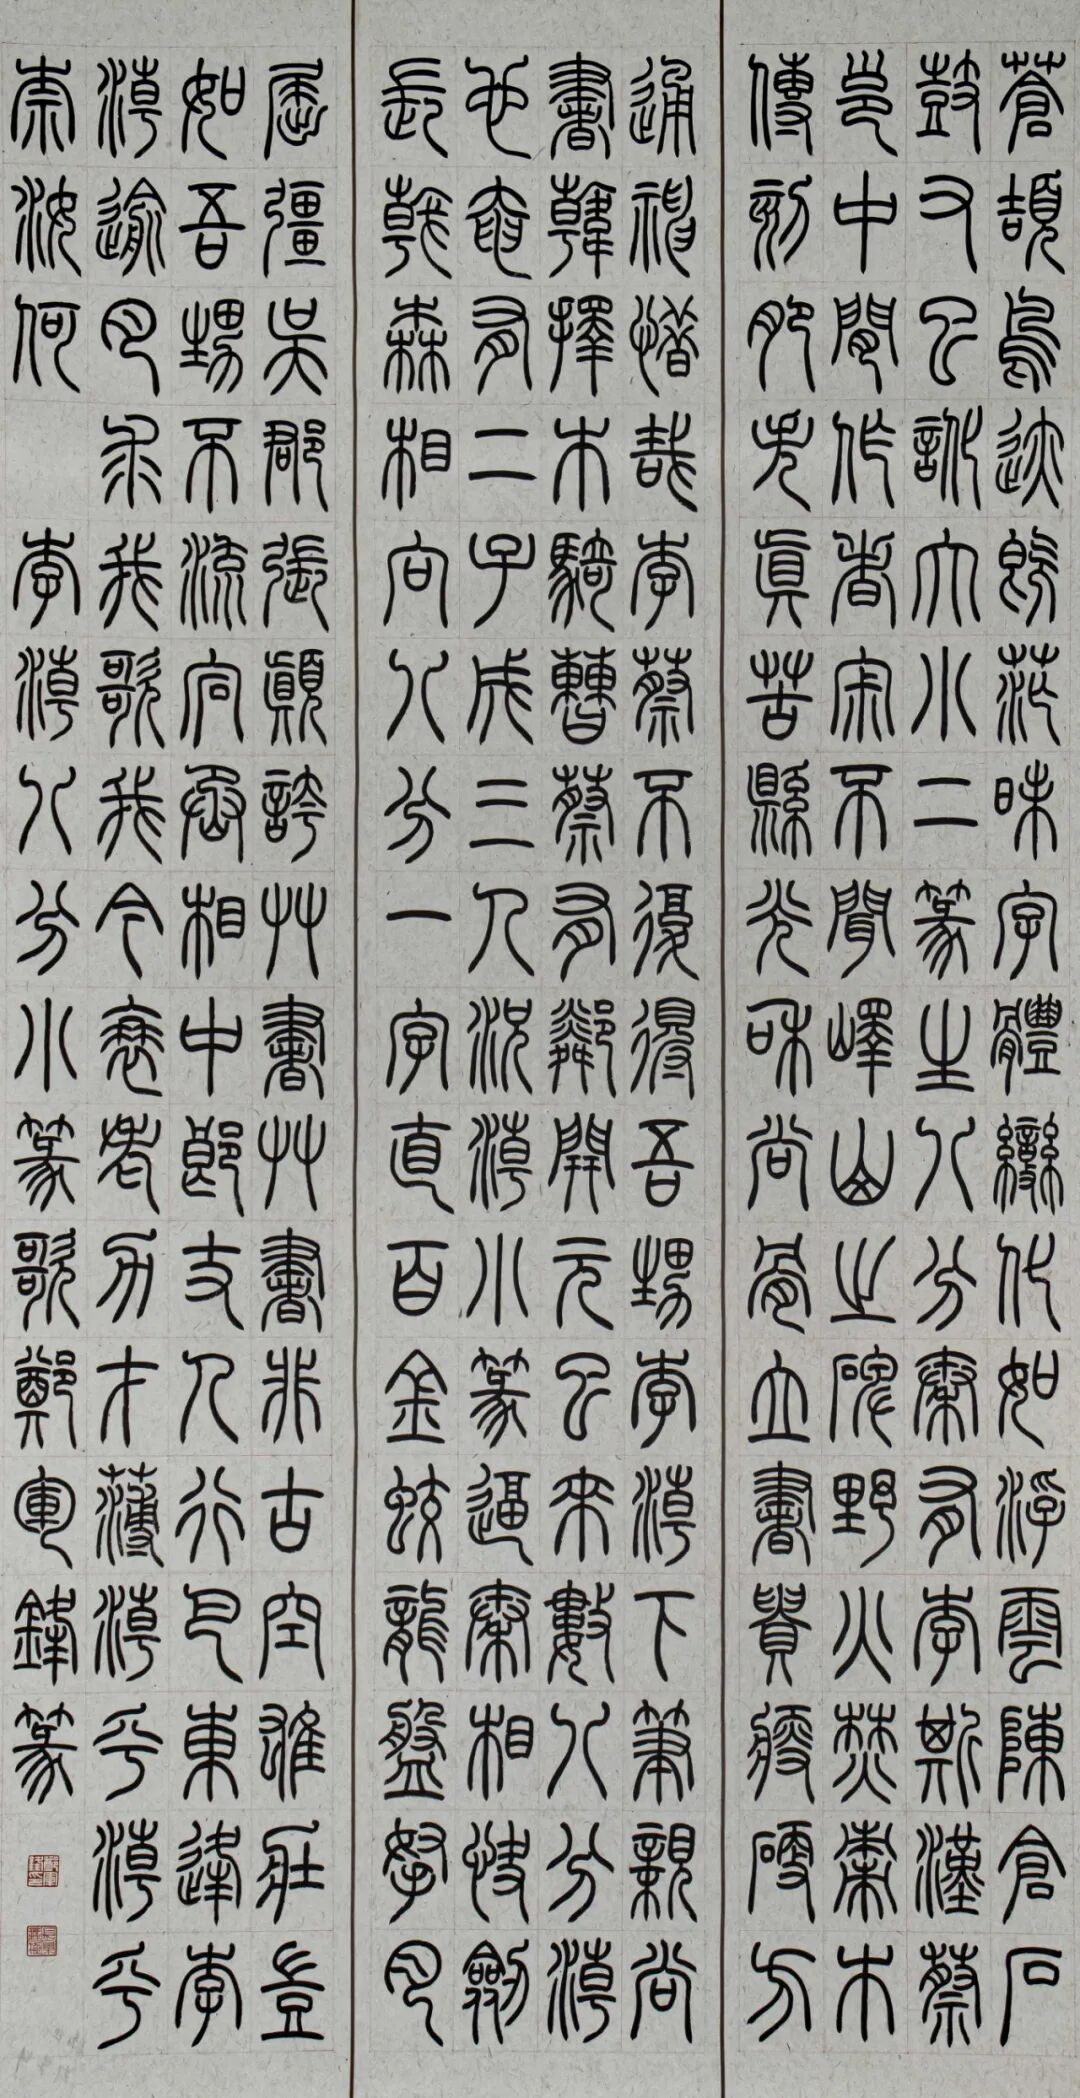 蒼頡鳥跡既茫昧字體變化如浮雲陳倉石
鼓又已訛大小二篆生八分秦有李斯漢蔡
邕中間作者寂不聞嶧山之碑野火焚棗木
傳刻肥失真苦縣光和尚骨立書貴瘦硬方
通神惜哉李蔡不復得吾甥李潮下筆親尚
書韓擇木騎曹蔡有鄰開元已來數八分潮
也奄有二子成三人況潮小篆逼秦相快劍
長戟森相向八分一字直百金蛟龍盤拏肉
屈彊吳郡張顛誇艸書艸書非古空雄壯豈
如吾甥不流宕丞相中郎丈人行巴東逢李
潮逾月求我歌我今衰老力才薄潮乎潮乎
柰汝何 李潮八分小篆歌鄭軍鋒篆